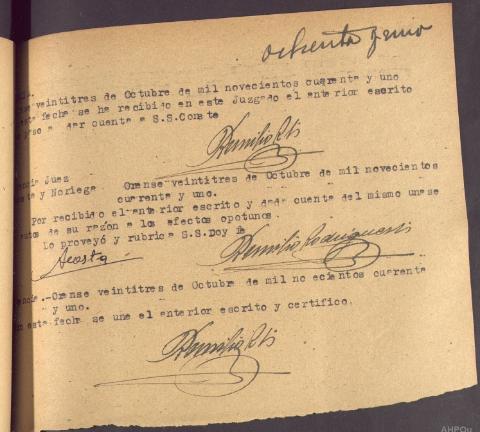 ochenta y uno
veintitres de Octubre de mil novecientos cuarenta y uno
esta fecha se ha recibido en este Juzgado el anterior escrito
paso a dar cuenta a S.S.Conste
Juez
y Noriega Orense veintitres de Octubre de mil novecientos
cuarenta y uno.
Por recibido el anterior escrito y dada cuenta del mismo unase
autos de su razón a los efectos opotunos.
Lo proveyó y rubrica S.S.Doy fe
Acosta
.-Orense veintitres de Octubre de mil no ecientos cuarenta
y uno.
esta fecha se une el anterior escrito y certifico.
AHPOu